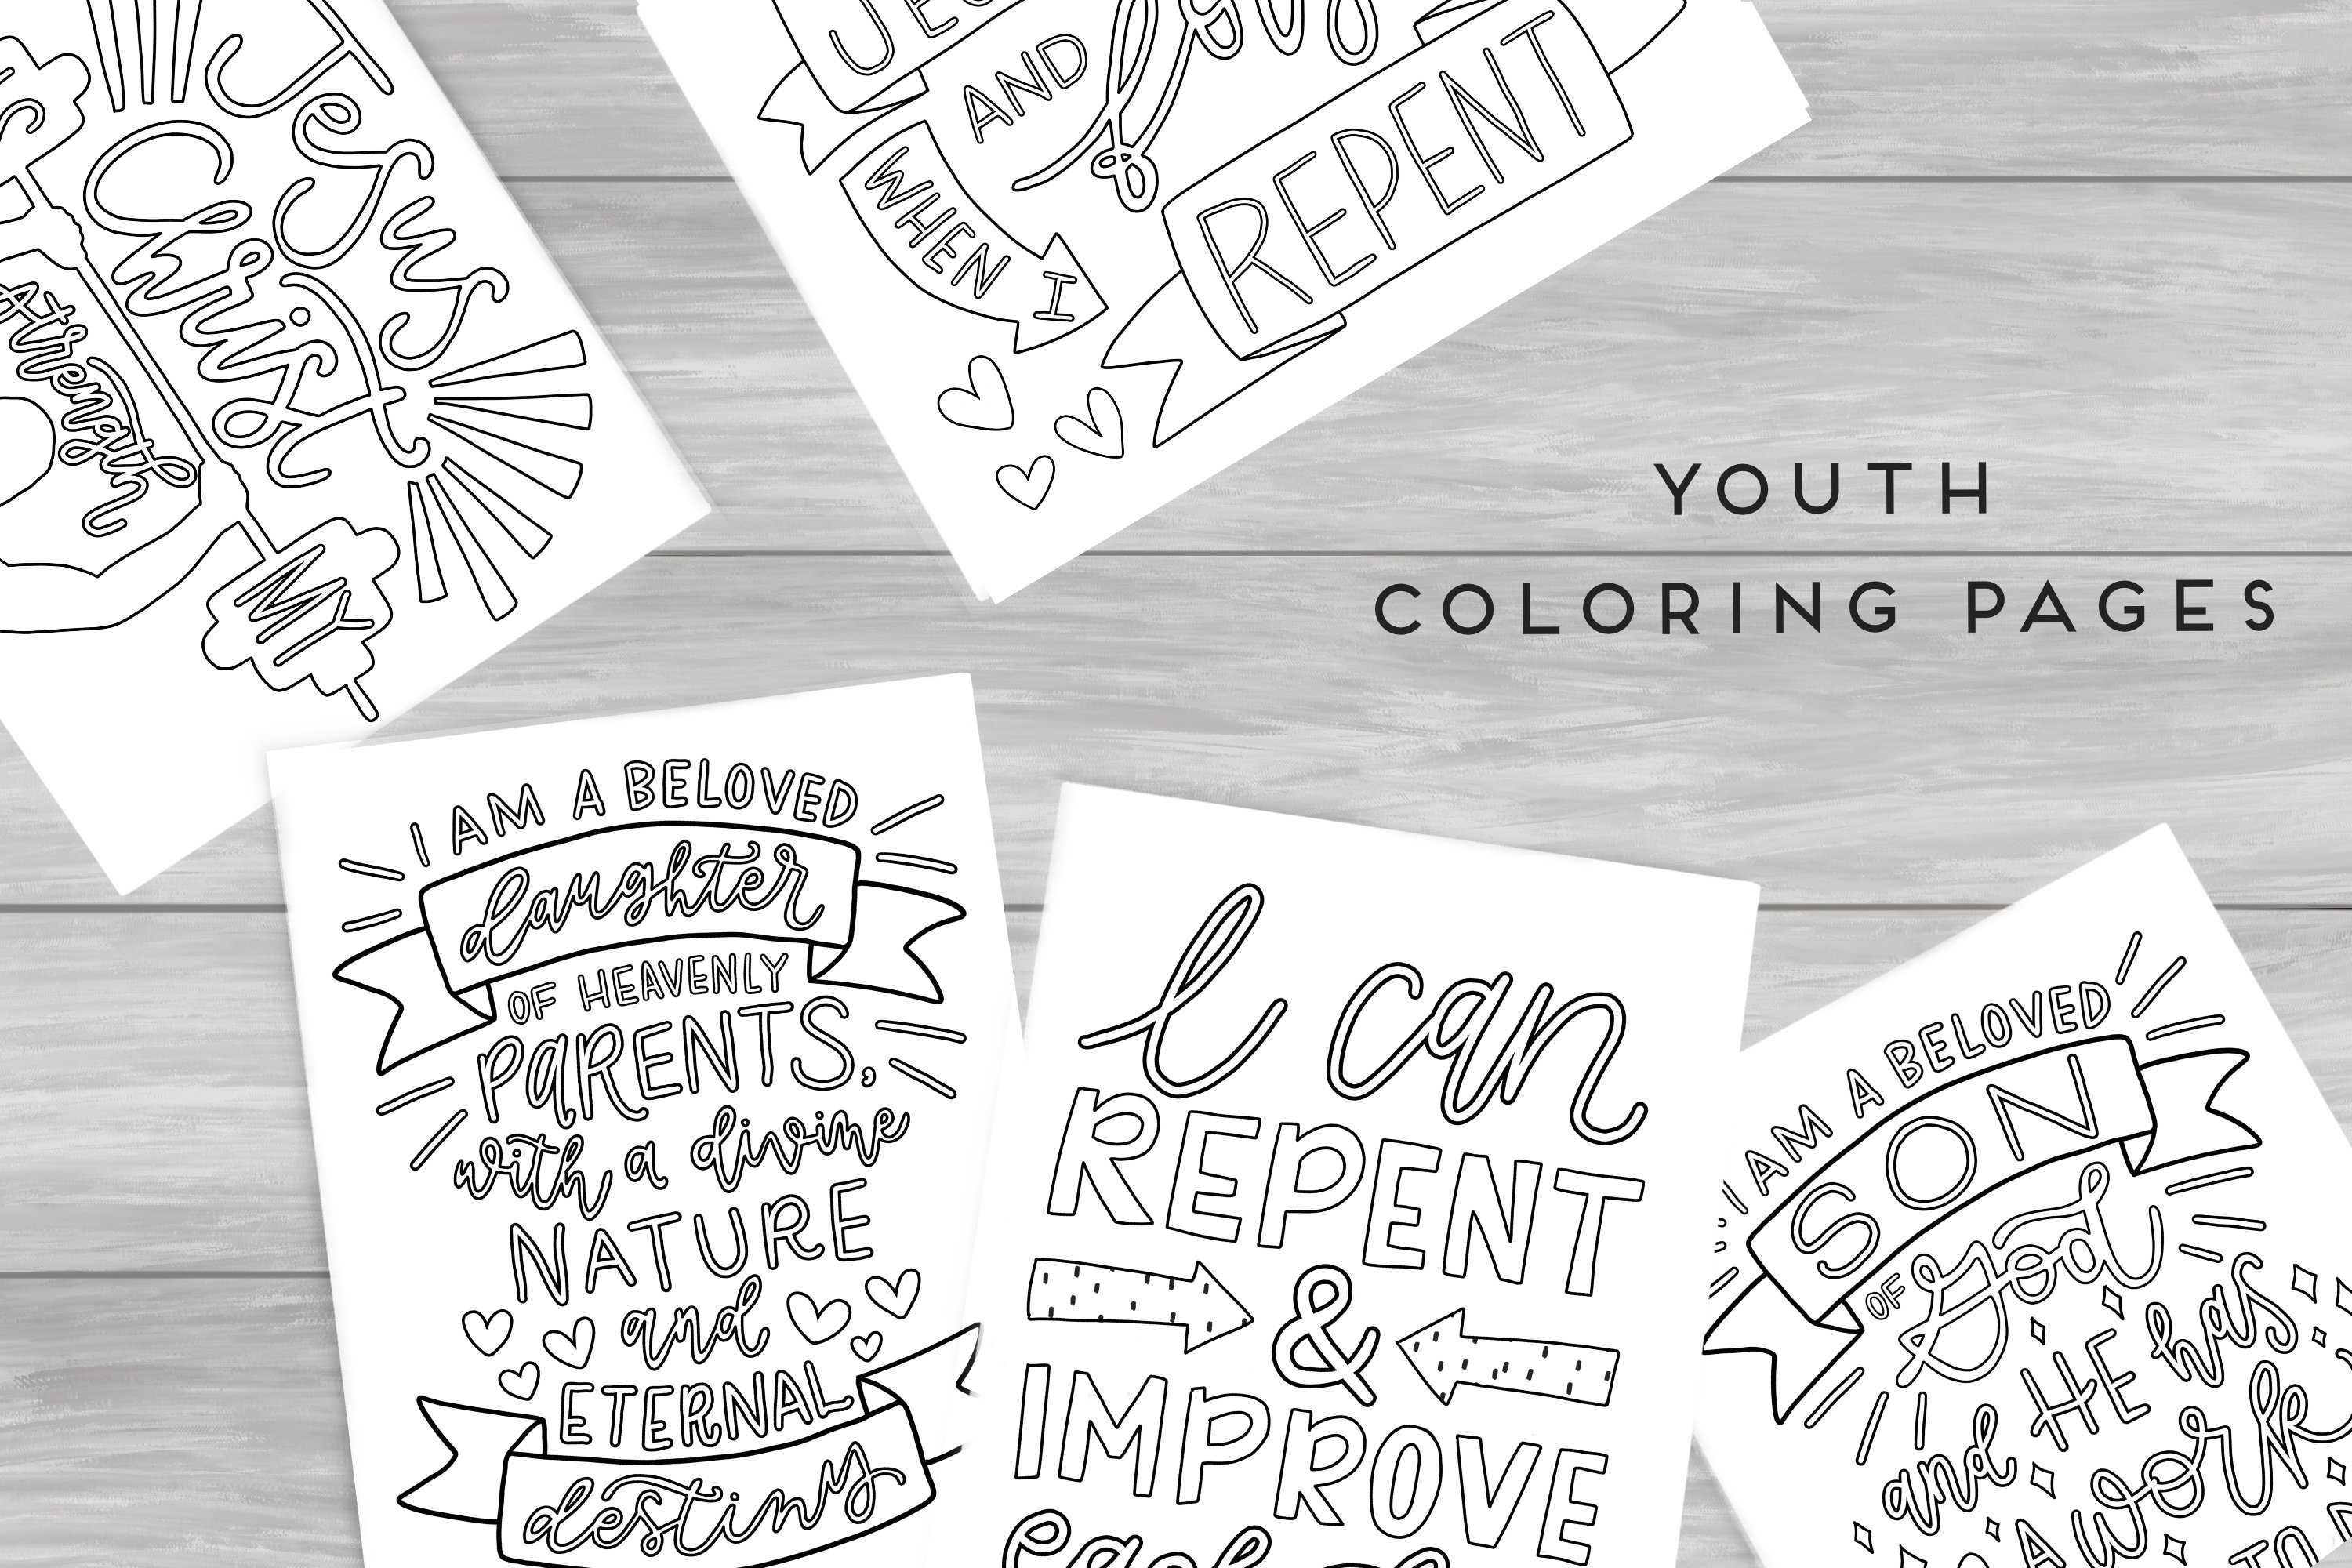 Jesus
Christ
IS
strength
MY
JES
AND
WHEN I
REPENT
YOUTH
COLORING PAGES
I AM A BELOVED
daughter
OF HEAVENLY
PARENTS,
with a divine
NATURE
and
ETERNAL
destiny
I can
REPENT
&
IMPROVE
each
I AM A BELOVED
SON
OF God
and HE has
A work